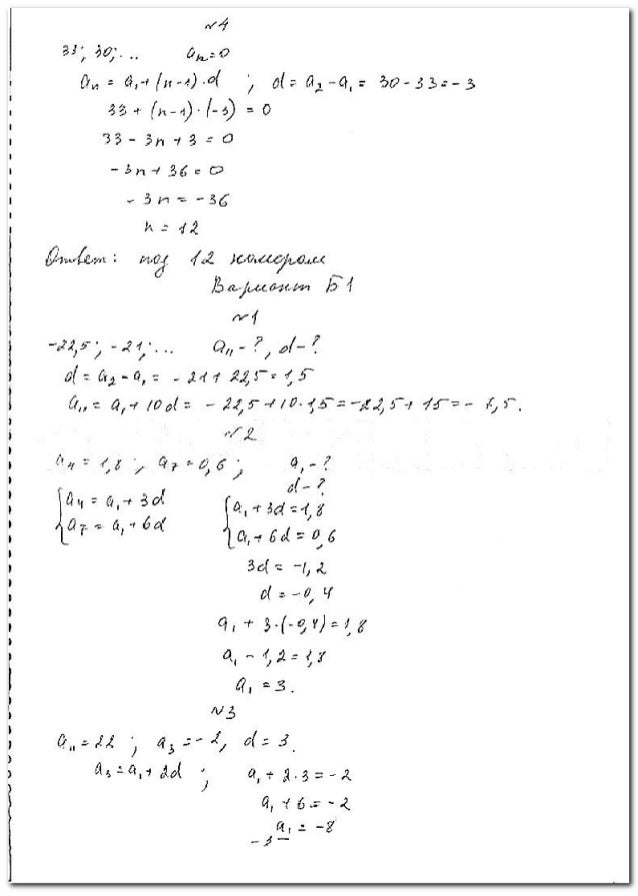 №4
33; 30; ... aₙ = 0
aₙ = a₁ + (n-1)·d ; d = a₂ - a₁ = 30 - 33 = -3
33 + (n-1)·(-3) = 0
33 - 3n + 3 = 0
-3n + 36 = 0
-3n = -36
n = 12
Ответ: под 12 номером
Вариант Б1
№1
-22,5; -21; ... a₁₁ - ?, d - ?
d = a₂ - a₁ = -21 + 22,5 = 1,5
a₁₁ = a₁ + 10d = -22,5 + 10·1,5 = -22,5 + 15 = -7,5.
№2
a₄ = 1,8; a₇ = 0,6; a₁ - ?
d - ?
{a₄ = a₁ + 3d {a₁ + 3d = 1,8
{a₇ = a₁ + 6d {a₁ + 6d = 0,6
3d = -1,2
d = -0,4
a₁ + 3·(-0,4) = 1,8
a₁ - 1,2 = 1,8
a₁ = 3.
№3
aₙ = 22 ; a₃ = -2, d = 3.
a₃ = a₁ + 2d ; a₁ + 2·3 = -2
a₁ + 6 = -2
a₁ = -8
-3-